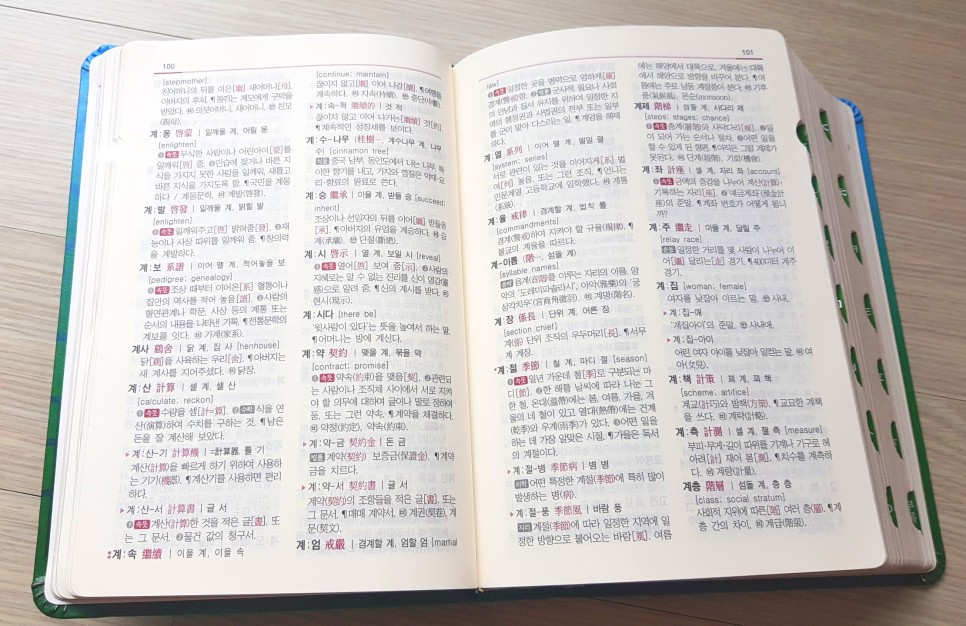 100
[stepmother]
친어머니의 뒤를 이은[繼] 새어머니[母].
아버지의 후처. ¶콩쥐는 계모에게 구박을
받았다. ㉥ 의붓어머니, 새어머니. ㉫ 친모
(親母).
계:몽 啓蒙 | 일깨울 계, 어릴 몽
[enlighten]
❶속뜻 무식한 사람이나 어린아이[蒙]를
일깨워[啓] 줌. ❷인습에 젖거나 바른 지
식을 가지지 못한 사람을 일깨워, 새롭고
바른 지식을 가지도록 함. ¶국민을 계몽
하다 / 계몽문학. ㉥ 계발(啓發).
계:발 啓發 | 일깨울 계, 밝힐 발
[enlighten]
❶속뜻 일깨워주고[啓] 밝혀줌[發]. ❷재
능이나 사상 따위를 일깨워 줌. ¶창의력
을 계발하다.
계:보 系譜 | 이어 맬 계, 적어놓을 보
[pedigree; genealogy]
❶속뜻 조상 때부터 이어온[系] 혈통이나
집안의 역사를 적어 놓음[譜]. ❷사람의
혈연관계나 학문, 사상 등의 계통 또는
순서의 내용을 나타낸 기록. ¶전통문학의
계보를 잇다. ㉥ 가계(家系).
계사 鷄舍 | 닭 계, 집 사 [henhouse]
닭[鷄]을 사육하는 우리[舍]. ¶아버지는
새 계사를 지어주셨다. ㉥ 닭장.
계:산 計算 | 셀 계, 셀 산
[calculate; reckon]
❶속뜻 수량을 셈[計=算]. ❷수학 식을 연
산(演算)하여 수치를 구하는 것. ¶남은
돈을 잘 계산해 보았다.
▸계:산-기 計算機 | =計算器, 틀 기
계산(計算)을 빠르게 하기 위하여 사용하
는 기기(機器). ¶계산기를 사용하면 편리
하다.
▸계:산-서 計算書 | 글 서
❶속뜻 계산(計算)한 것을 적은 글[書]. 또
는 그 문서. ❷물건 값의 청구서.
계:속 繼續 | 이을 계, 이을 속
[continue; maintain]
끊이지 않고[繼] 이어 나감[續]. ¶여행을
계속하다. ㉥ 지속(持續). ㉫ 중단(中斷).
▸계:속-적 繼續的 | 것 적
끊이지 않고 이어 나가는[繼續] 것[的].
¶계속적인 성장세를 보이다.
계:수-나무 (桂樹-, 계수나무 계, 나무
수) [cinnamon tree]
식물 중국 남부, 동인도에서 나는 나무. 특
이한 향기를 내고, 가지와 껍질은 약재·요
리·향료의 원료로 쓴다.
계:승 繼承 | 이을 계, 받들 승 [succeed;
inherit]
조상이나 선임자의 뒤를 이어[繼] 받듦을
[承]. ¶아버지의 유업을 계승하다. ㉥ 승
계(承繼). ㉫ 단절(斷絶).
계:시 啓示 | 열 계, 보일 시 [reveal]
❶속뜻 열어[啓] 보여 줌[示]. ❷사람의
지혜로는 알 수 없는 진리를 신이 영감(靈
感)으로 알려 줌. ¶신의 계시를 받다. ㉥
현시(現示).
계:시다 [there be]
'윗사람이 있다'는 뜻을 높여서 하는 말.
¶어머니는 방에 계신다.
계:약 契約 | 맺을 계, 묶을 약
[contract; promise]
❶속뜻 약속(約束)을 맺음[契]. ❷관련되
는 사람이나 조직체 사이에서 서로 지켜
야 할 의무에 대하여 글이나 말로 정하여
둠. 또는 그런 약속. ¶계약을 체결하다.
㉥ 약정(約定), 약속(約束).
▸계:약-금 契約金 | 돈 금
법률 계약(契約) 보증금(保證金). ¶계약
금을 치르다.
▸계:약-서 契約書 | 글 서
계약(契約)의 조항들을 적은 글[書]. 또는
그 문서. ¶매매 계약서. ㉥ 계권(契券), 계
문(契文).
계:엄 戒嚴 | 경계할 계, 엄할 엄 [martial
101
law]
❶속뜻 일정한 곳을 병력으로 엄하게[嚴]
경계(警戒)함. ❷법률 군사적 필요나 사회
의 안녕과 질서 유지를 위하여 일정한 지
역의 행정권과 사법권의 전부 또는 일부
를 군이 맡아 다스리는 일. ¶계엄을 해제
하다.
계:열 系列 | 이어 맬 계, 벌일 렬
[system; series]
서로 관련이 있는 것을 이어지게[系] 벌
여[列] 놓음. 또는 그런 조직. ¶언니는
인문계열 고등학교에 입학했다. ㉥ 계통
(系統).
계:율 戒律 | 경계할 계, 법칙 률
[commandments]
경계(警戒)하여 지켜야 할 규율(規律). ¶
불교의 계율을 따르다.
계-이름 (階-, 섬돌 계)
[syllable names]
음악 음계(音階)를 이루는 자리의 이름. 양
악의 '도레미파솔라시', 아악(雅樂)의 '궁
상각치우'(宮商角徵羽). ㉥ 계명(階名).
계:장 係長 | 단위 계, 어른 장
[section chief]
계(係) 단위 조직의 우두머리[長]. ¶서무
계 계장.
계:절 季節 | 철 계, 마디 절 [season]
❶속뜻 일년 가운데 철[季]로 구분되는 마
디[節]. ❷한 해를 날씨에 따라 나눈 그
한 철. 온대(溫帶)에는 봄, 여름, 가을, 겨
울의 네 철이 있고 열대(熱帶)에는 건계
(乾季)와 우계(雨季)가 있다. ❸어떤 일을
하는 데 가장 알맞은 시절. ¶가을은 독서
의 계절이다.
▸계:절-병 季節病 | 병 병
의학 어떤 특정한 계절(季節)에 특히 많이
발생하는 병(病).
▸계:절-풍 季節風 | 바람 풍
지리 계절(季節)에 따라 일정한 지역에 일
정한 방향으로 불어오는 바람[風]. 여름
에는 해양에서 대륙으로, 겨울에는 대륙
에서 해양으로 방향을 바꾸어 분다. ¶여
름에는 주로 남동 계절풍이 분다. ㉥ 기후
풍(氣候風), 몬순(monsoon).
계제 階梯 | 섬돌 계, 사다리 제
[steps; stages; chance]
❶속뜻 층계(層階)와 사닥다리[梯]. ❷일
이 되어 가는 순서나 절차. ❸어떤 일을
할 수 있게 된 형편. ¶아직은 그럴 계제가
못된다. ㉥ 단계(段階), 기회(機會).
계:좌 計座 | 셀 계, 자리 좌 [account]
❶속뜻 금액의 증감을 나누어 계산(計算)·
기록하는 자리[座]. ❷'예금계좌(預金計
座)의 준말. ¶계좌 번호가 어떻게 됩니
까?
계:주 繼走 | 이을 계, 달릴 주
[relay race]
운동 일정한 거리를 몇 사람이 나누어 이
어[繼] 달리는[走] 경기. ¶400미터 계주
경기.
계:집 [woman; female]
여자를 낮잡아 이르는 말. ㉫ 사내.
▸계:집-애
'계집아이'의 준말. ㉫ 사내애.
▸계:집-아이
어린 여자 아이를 낮잡아 일컫는 말. ㉥ 여
아(女兒).
계:책 計策 | 꾀 계, 꾀 책
[scheme; artifice]
계교(計巧)와 방책(方策). ¶교묘한 계책
을 쓰다. ㉥ 계략(計略).
계:측 計測 | 셀 계, 잴 측 [measure]
부피·무게·길이 따위를 기계나 기구로 헤
아려[計] 재어 봄[測]. ¶치수를 계측하
다. ㉥ 계량(計量).
계층 階層 | 섬돌 계, 층 층
[class; social stratum]
사회적 지위에 따른[階] 여러 층[層]. ¶계
층 간의 차이. ㉥ 계급(階級).